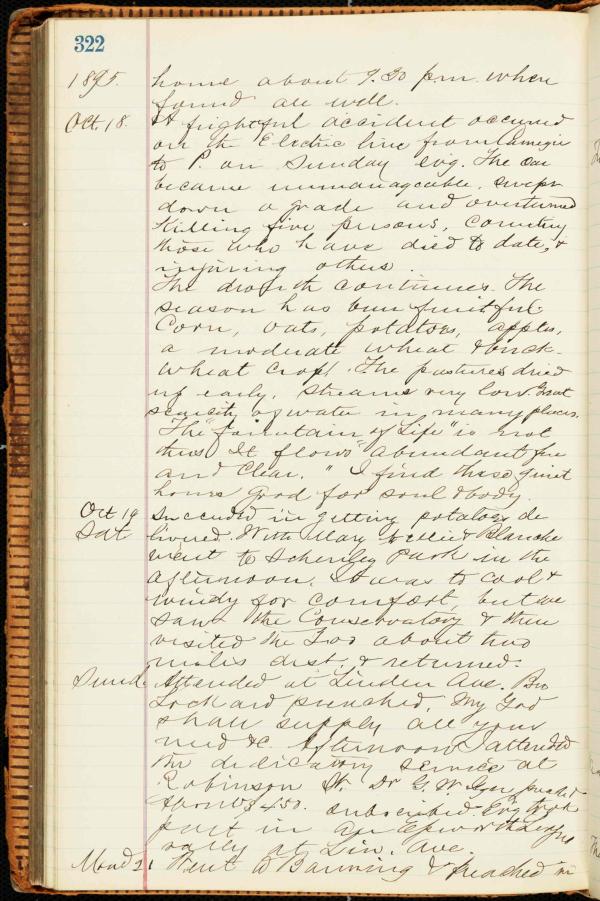 322
1895. home about 9.30 pm. where
found all well.
Oct. 18. A frightful accident occurred
on the Electric line from Carnegie
to P. on Sunday evg. The car
became unmanageable, swept
down a grade and overturned
killing five persons, counting
those who have died to date, &
injuring others.
The drouth continues. The
season has been fruitful
Corn, oats, potatoes, apples,
a moderate wheat & buck-
wheat crop. The pastures dried
up early, streams very low. Great
scarcity of water in many places.
The "fountain of Life" is not
thus It flows "abundant free
and clear." I find these quiet
hours good for soul & body.
Oct 19 Succeeded in getting potatoes de
Sat livered. With Mary & Blanche
went to Schenley Park in the
afternoon. It was to cool &
windy for comfort, but we
saw the Conservatory & then
visited the Zoo about two
miles dist. & returned.
Sund. Attended at Linden Ave. Bro
Lockard preached. My God
shall supply all your
need &c. Afternoon I attended
the dedicatory service at
Robinson St. Dr G. W. preached
450. subscribed. Evg took
part in an Epworth
rally at Lin. Ave.
Mond 21 Went to Banning & preached in